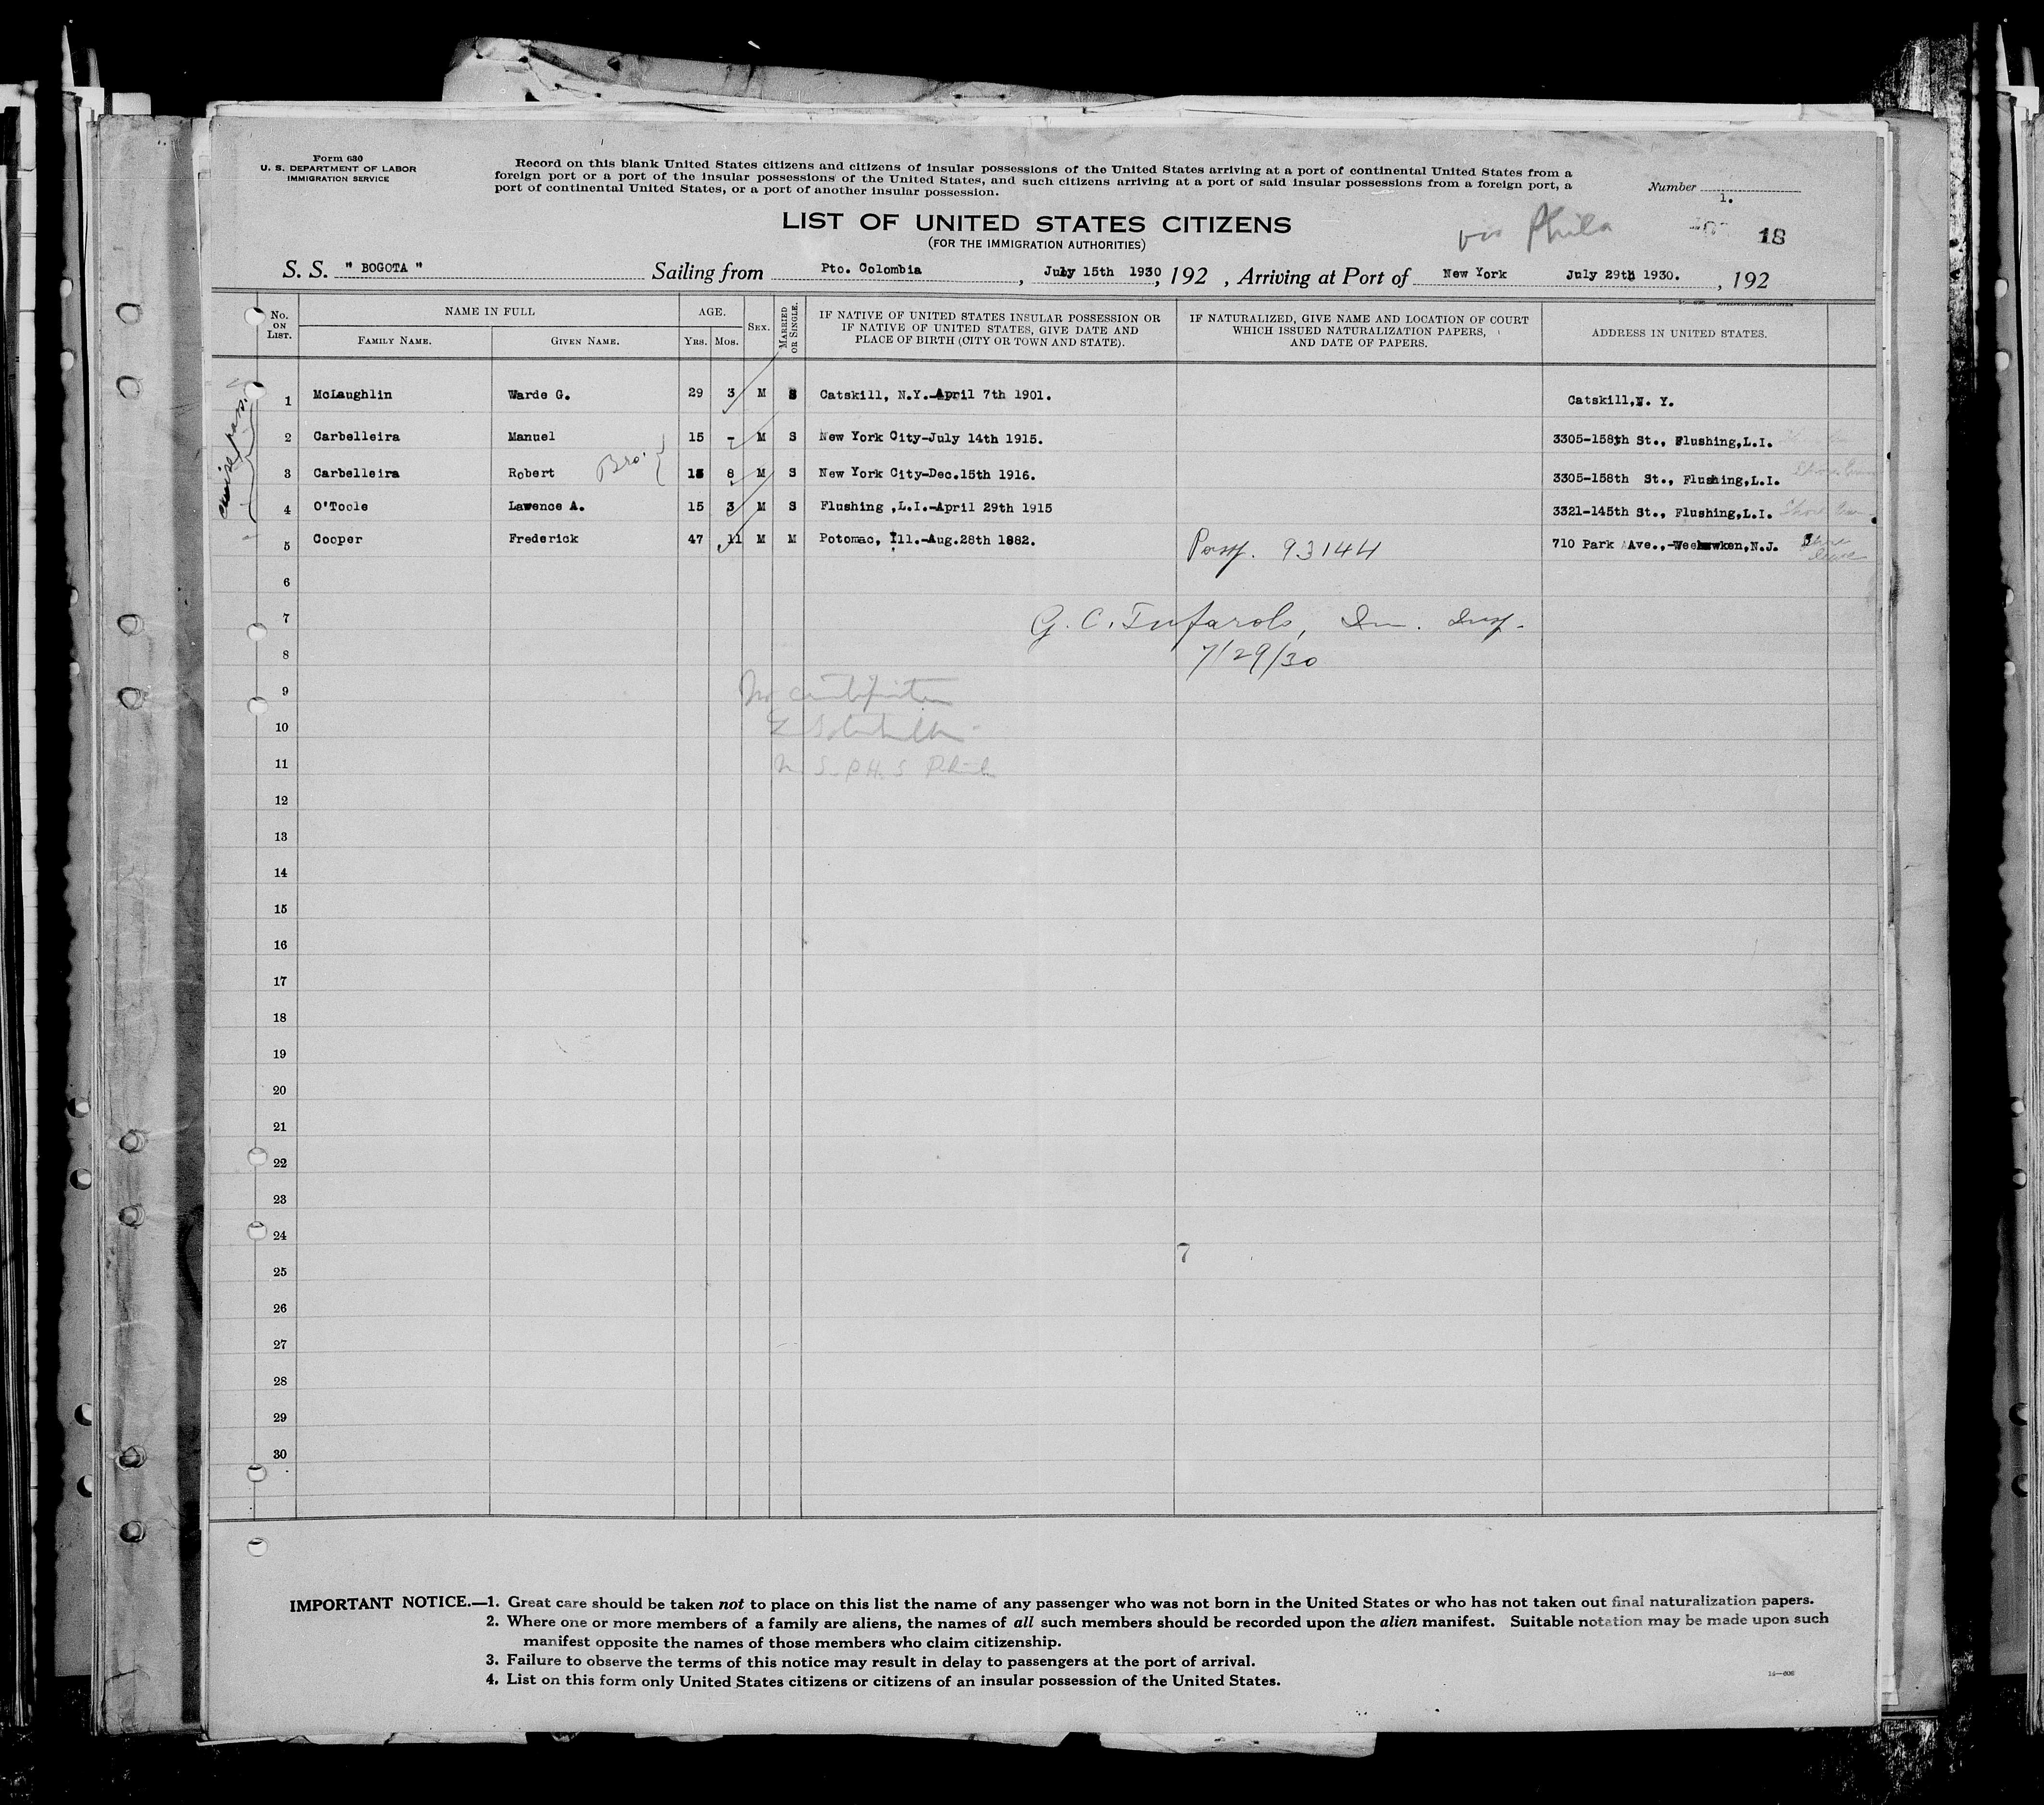 Form 630
U. S. DEPARTMENT OF LABOR
IMMIGRATION SERVICE
Record on this blank United States citizens and citizens of insular possessions of the United States arriving at a port of continental United States from a
foreign port or a port of the insular possessions of the United States, and such citizens arriving at a port of said insular possessions from a foreign port, a
port of continental United States, or a port of another insular possession.
Number
1.
LIST OF UNITED STATES CITIZENS
(FOR THE IMMIGRATION AUTHORITIES)
via Phila
18
S. S. " BOGOTA " Sailing from Pto. Colombia, July 15th 1930, 192 , Arriving at Port of New York July 29th 1930. , 192
No. ON LIST. NAME IN FULL AGE. SEX. MARRIED OR SINGLE. IF NATIVE OF UNITED STATES INSULAR POSSESSION OR IF NATIVE OF UNITED STATES, GIVE DATE AND PLACE OF BIRTH (CITY OR TOWN AND STATE). IF NATURALIZED, GIVE NAME AND LOCATION OF COURT WHICH ISSUED NATURALIZATION PAPERS, AND DATE OF PAPERS. ADDRESS IN UNITED STATES.
FAMILY NAME. GIVEN NAME. YRS. MOS.
1 McLaughlin Warde G. 29 3 M S Catskill, N.Y.-April 7th 1901. Catskill,N. Y.
2 Carbelleira Manuel 15 - M S New York City-July 14th 1915. 3305-158th St., Flushing,L.I.
3 Carbelleira Robert Bro. 13 8 M S New York City-Dec.15th 1916. 3305-158th St., Flushing,L.I.
4 O'Toole Lawence A. 15 3 M S Flushing ,L.I.-April 29th 1915 3321-145th St., Flushing,L.I.
5 Cooper Frederick 47 11 M M Potomac, Ill.-Aug.28th 1882. Passp. 93144 710 Park Ave.,-Weehawken,N.J.
cruise pass.
6
7
G. C. Tufarolo, Im. Insp.
8
7/29/30
9
10
11
12
13
14
15
16
17
18
19
20
21
22
23
24
7
25
26
27
28
29
30
IMPORTANT NOTICE.—1. Great care should be taken not to place on this list the name of any passenger who was not born in the United States or who has not taken out final naturalization papers.
2. Where one or more members of a family are aliens, the names of all such members should be recorded upon the alien manifest. Suitable notation may be made upon such
manifest opposite the names of those members who claim citizenship.
3. Failure to observe the terms of this notice may result in delay to passengers at the port of arrival.
4. List on this form only United States citizens or citizens of an insular possession of the United States.